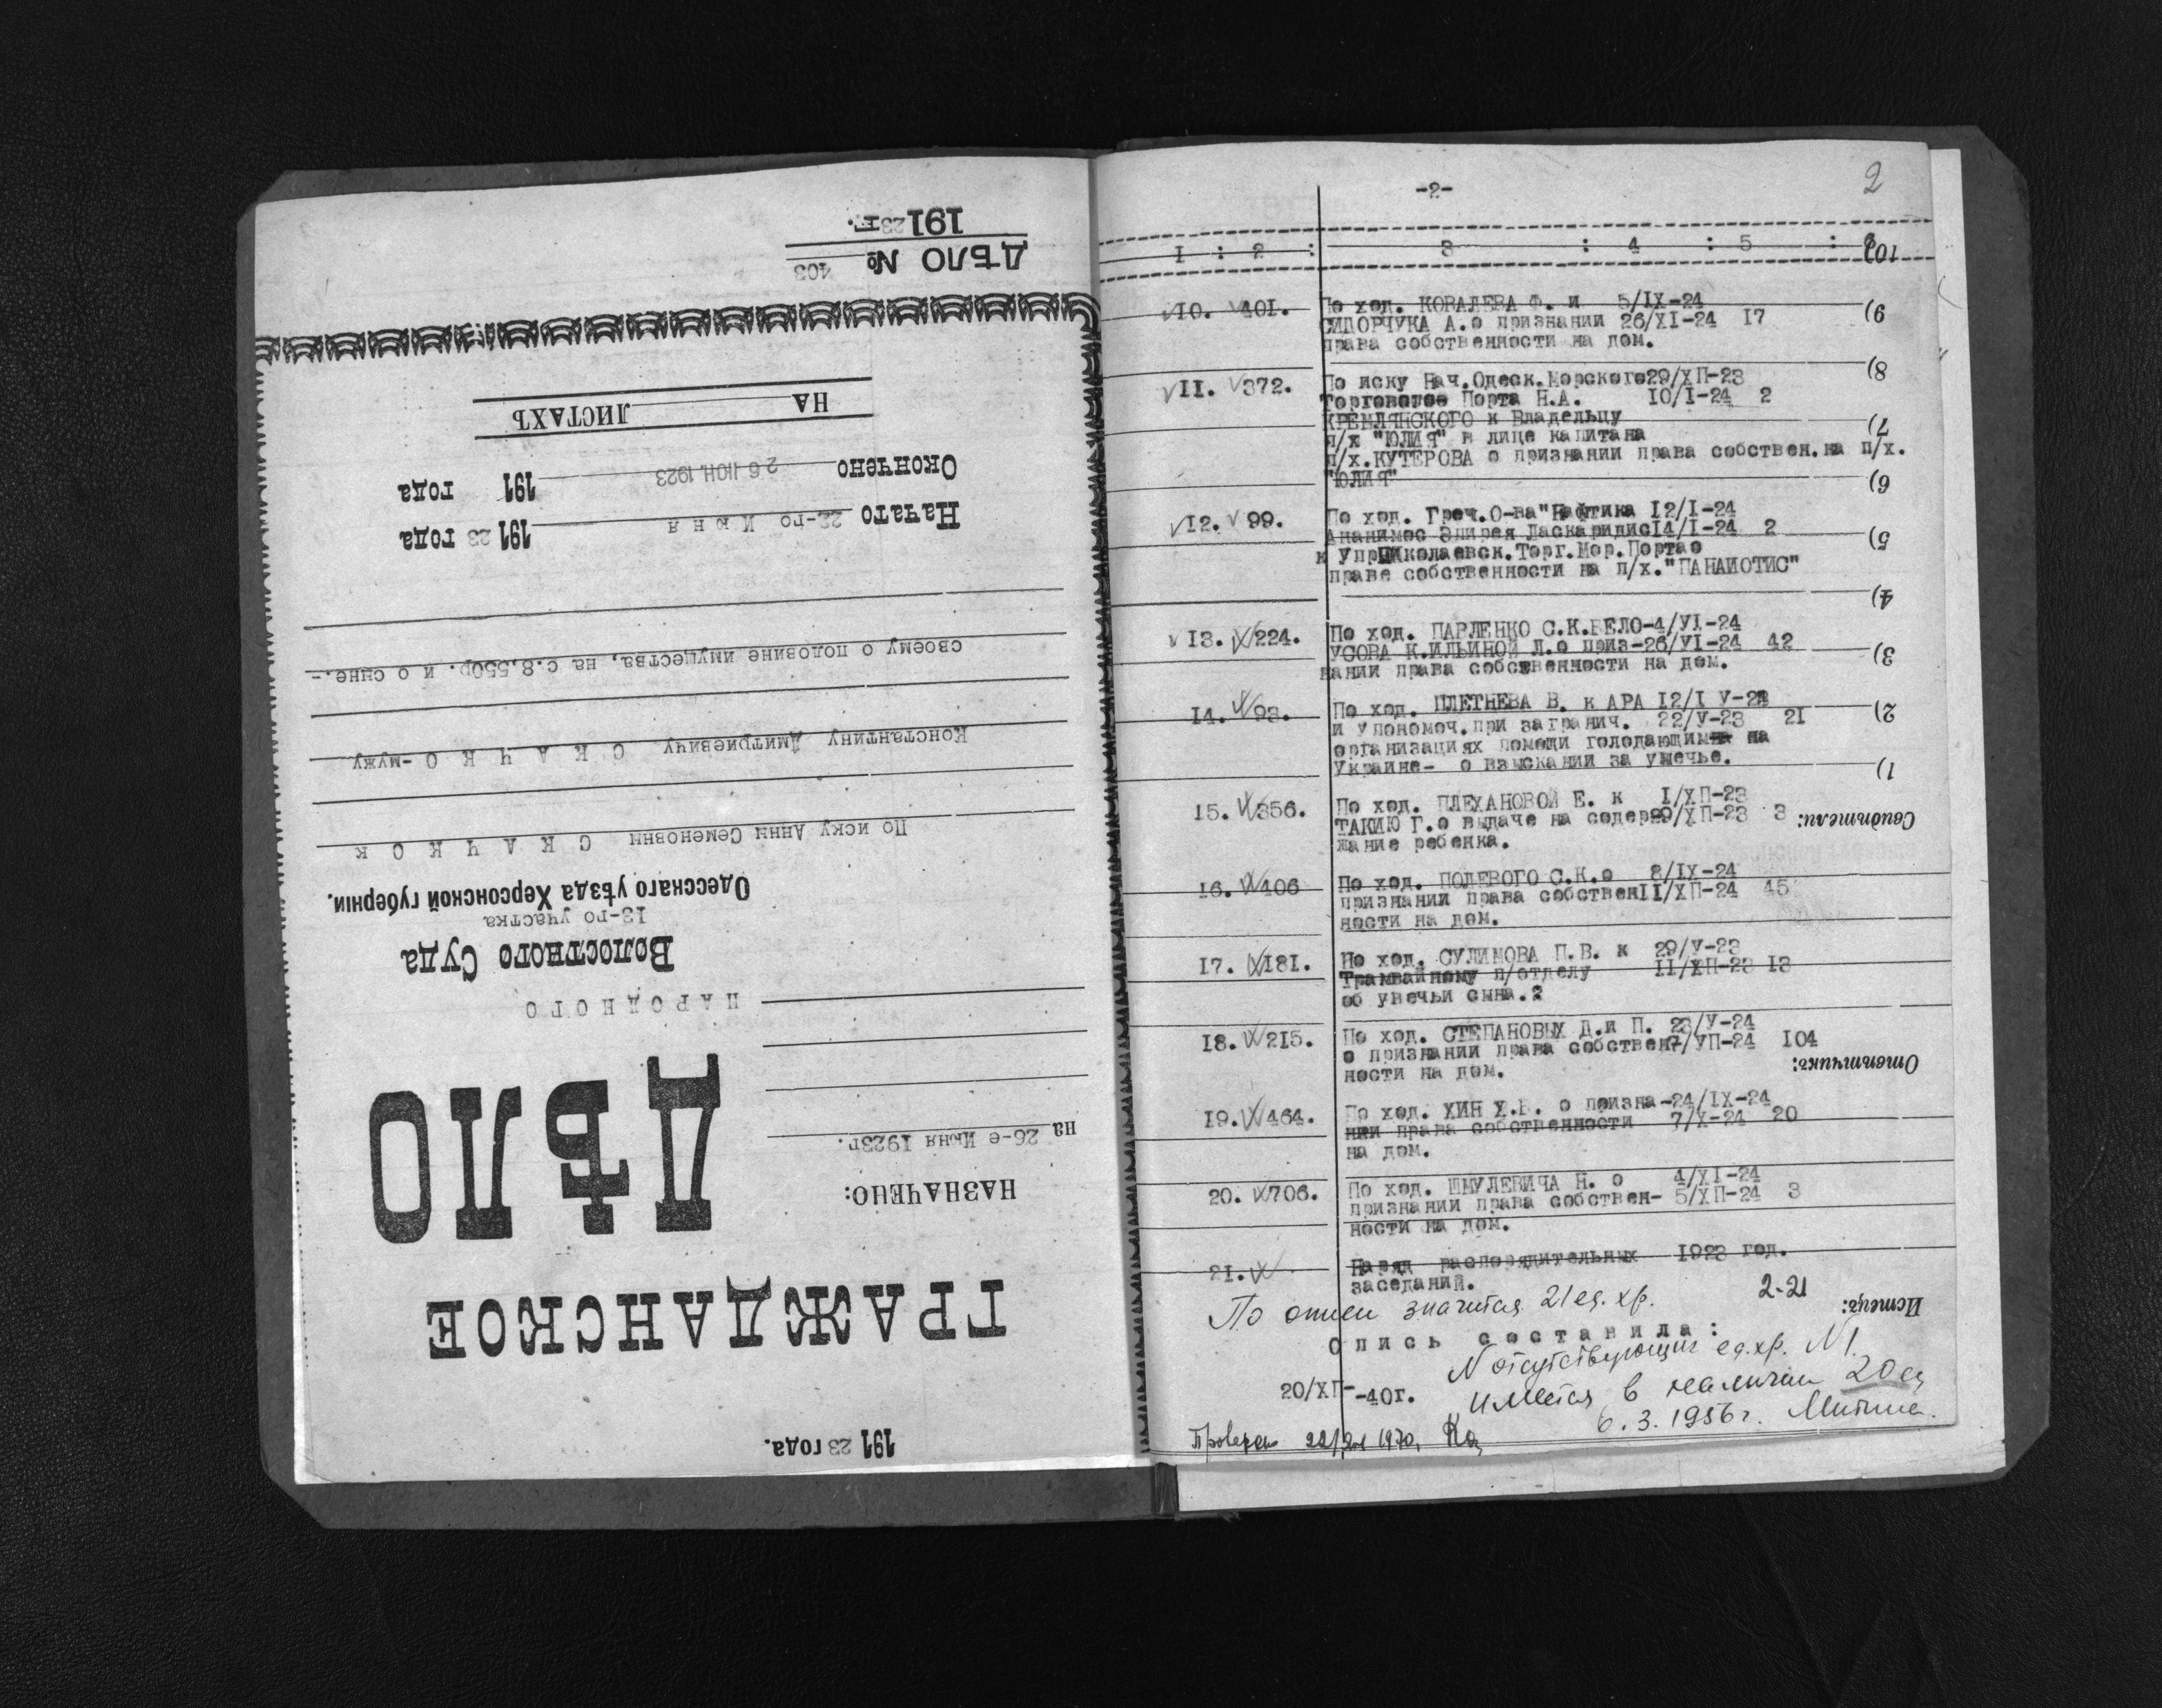 191 23 года.
ГРАЖДАНСКОЕ
ДѢЛО
НАЗНАЧЕНО:
на 26-е Июня 1923г.
НАРОДНОГО
Волостного Суда
13-го участка
Одесскаго уѣзда Херсонской губерніи.
По иску Анны Семеновны С К А Ч К О К
Константину Дмитриевичу С К А Ч К О -мужу
своему о половине имущества, на с.8,550р. и о сыне.-
Начато 22-го Июня 191 23 года
Окончено 26 ИЮН. 1923 191 года
НА ЛИСТАХЪ
ДѢЛО № 403
191 23 г.
2
-2-
I : 2 : 3 : 4 : 5 :
10)
10. 401. По ход. КОВАЛЕВА Ф. и 5/IX-24
СИДОРЧУКА А.о признании 26/XI-24 17
права собственности на дом.
9)
8)
11. 372. По иску Нач.Одеск.Морского29/XП-23
Торгового Порта Н.А. 10/I-24 2
КРЕМЛЯНСКОГО к Владельцу
п/х "ЮЛИЯ" в лице капитана
п/х.КУТЕРОВА о признании права собствен.на п/х.
"ЮЛИЯ"
7)
6)
12. 99. По ход. Греч.О-ва"Нафтика 12/I-24
Ананимос Эпирея Ласкаридис14/I-24 2
к Упр.Николаевск.Торг.Мор.Портао
праве собственности на п/х."ПАНАИОТИС"
5)
4)
13. 224. По ход. ПАРЛЕНКО С.К.БЕЛО-4/УI-24
УСОВА К.ИЛЬИНОЙ Л.о приз-26/УI-24 42
нании права собственности на дом.
3)
14. 93. По ход. ПЛЕТНЕВА В. к АРА 12/I У-23
и упономоч.при загранич. 22/У-23 21
организациях помощи голодающим на
Украине- о взыскании за увечье.
2)
1)
15. 356. По ход. ПЛЕХАНОВОЙ Е. к I/XП-23
ТАКИЮ Г.о выдаче на содер29/XП-23 3
жание ребенка.
Свидѣтели:
16. 406 По ход. ПОЛЕВОГО С.К.о 8/IX-24
признании права собствен11/XП-24 45
ности на дом.
17. 181. По ход. СУЛИМОВА П.В. к 29/У-23
Трамвайному п/отделу 11/XП-23 13
об увечьи сына.
18. 215. По ход. СТЕПАНОВЫХ Д.и П. 23/У-24
о признании права собствен-7/УП-24 104
ности на дом.
Отвѣтчикъ:
19. 464. По ход. ХИН Х.Б. о призна-24/IX-24
нии права собственности 7/X-24 20
на дом.
20. 706. По ход. ШМУЛЕВИЧА Н. о 4/XI-24
признании права собствен- 5/XП-24 3
ности на дом.
21. Наряд распорядительных 1923 год.
заседаний.
Истецъ:
По описи значится 21 ед. хр. 2-21
О п и с ь с о с т а в и л а :
N отсутствующих ед.хр. N 1.
20/XП--40г. имеется в наличии 20 ед
6.3.1956г.
Проверено 1970,